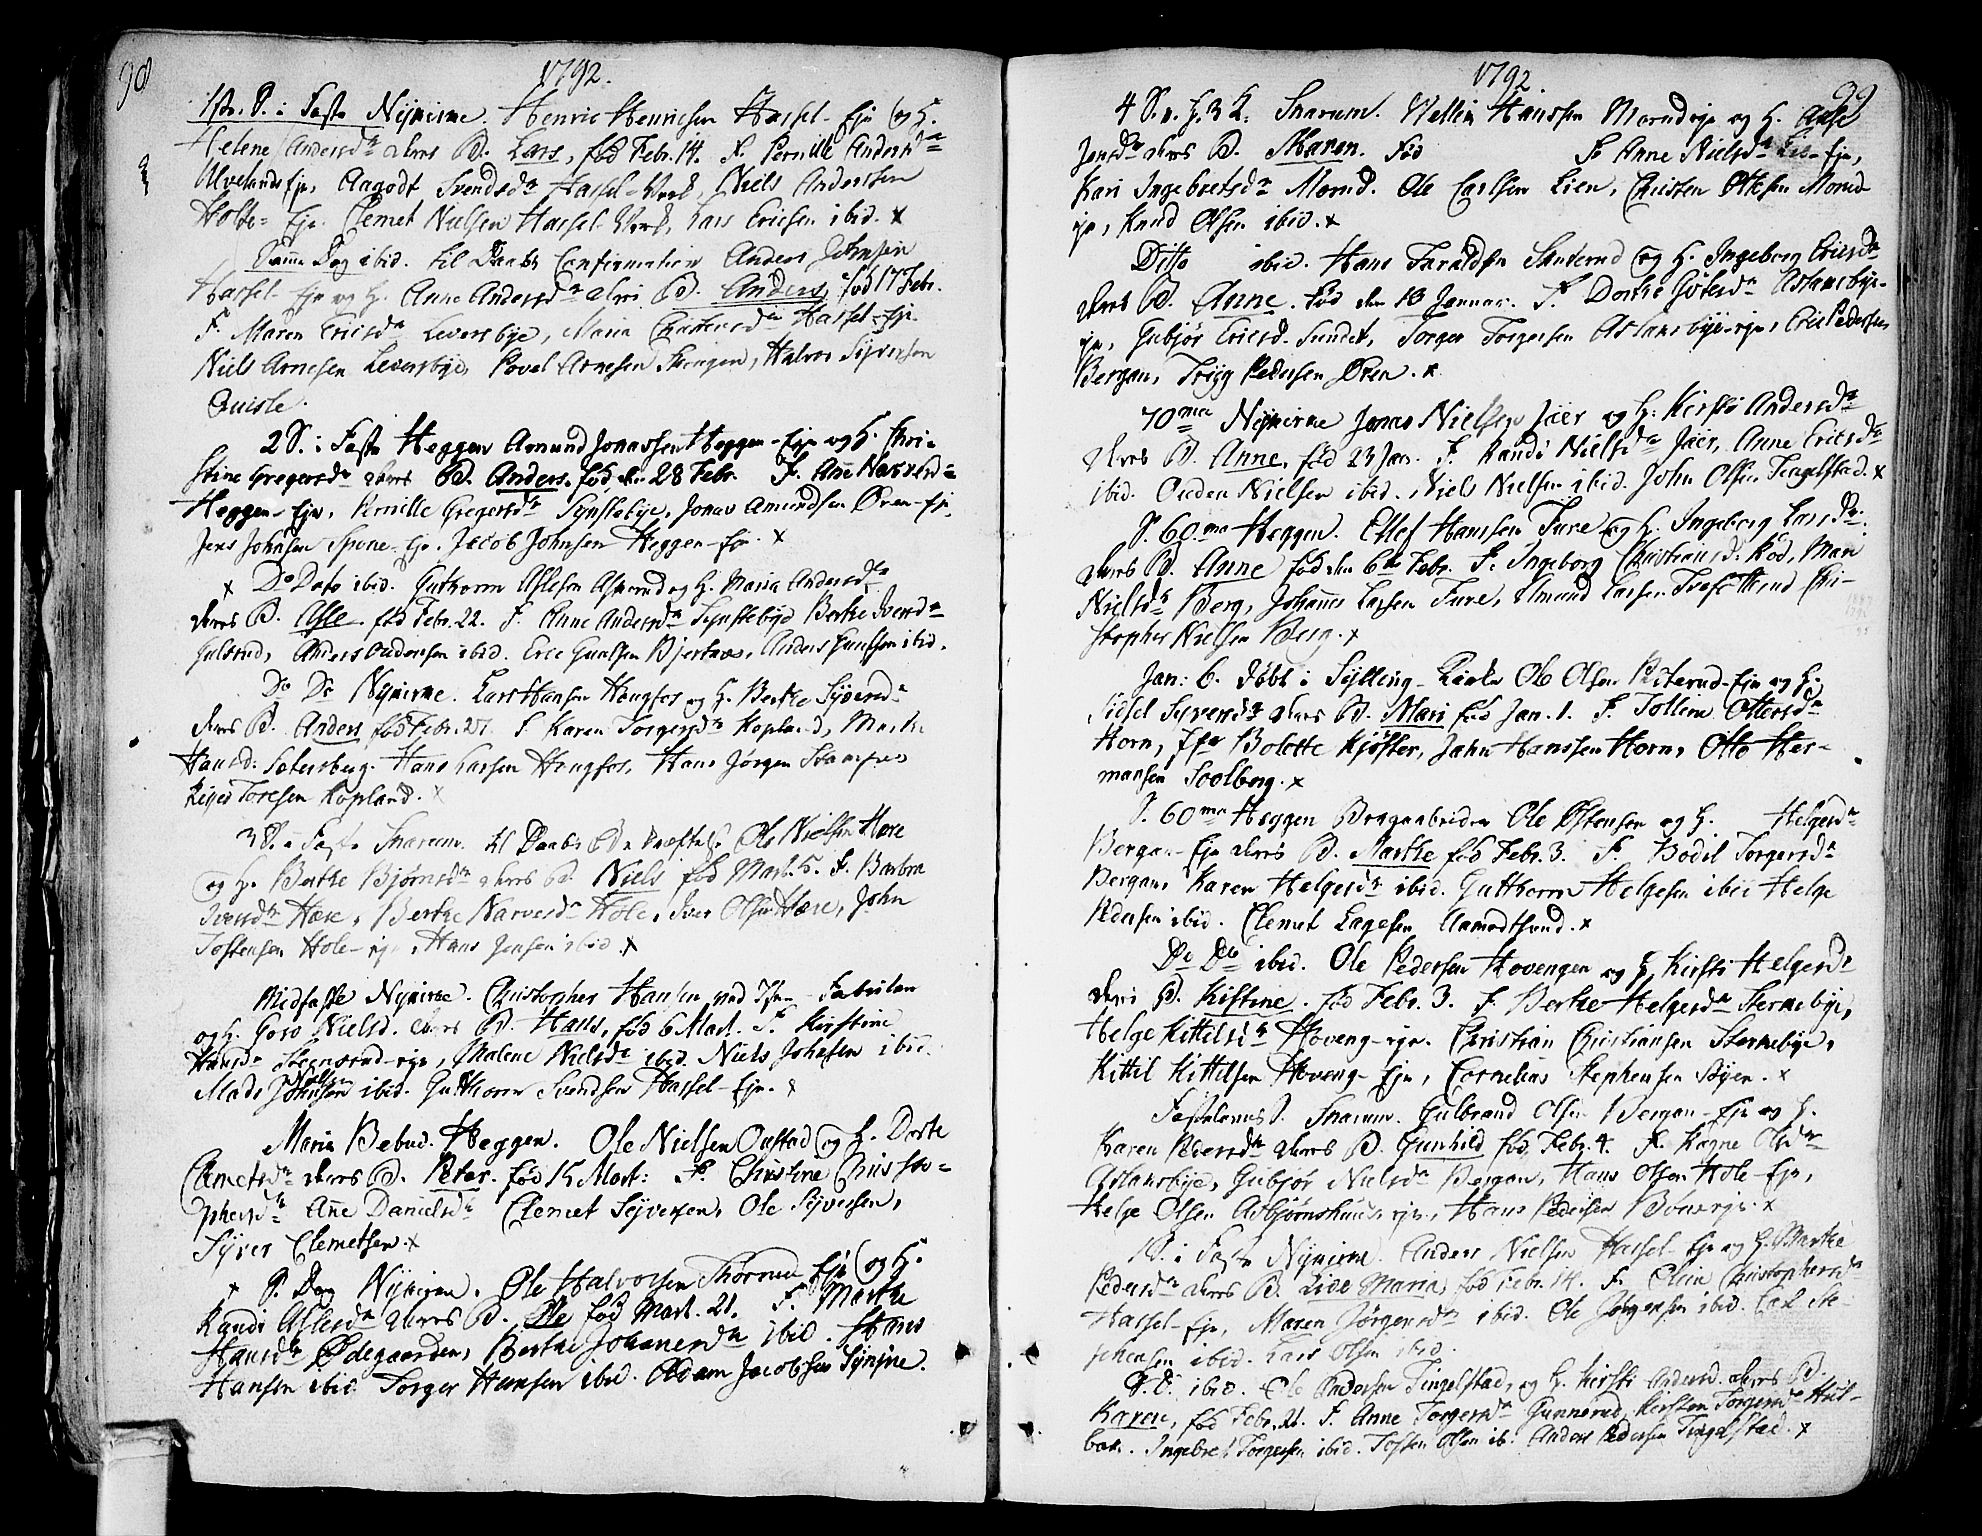 98
1792.
1ste S. i Faste Nykirke. Henric Henricsen Hassel-Eje og H.
Helene Andersdr deres B. Lars, fød Febr. 14. F. Pernille Andersdr
Ulvelands Eje, Aagodt Svendsdr Hassel-Verk, Niels Andersen
Holte-Eje. Clemet Nielsen Hassel-Verk, Lars Ericsen ibid. x
Samme Dag ibid. til Daabs Confirmation Anders Johnsen
Hassel-Eje og H. Anne Andersdr deres B. Anders, fød 17 Febr.
F. Maren Ericsdr Leversbye, Maria Christensdr Hassel-Eje
Niels Arnesen Leversbye, Povel Arnesen, Halvor Syversen
Quisle.
2 S. i Faste Heggen Amund Jonassen Heggen-Eje og H. Chri-
stine Gregersdr deres B. Anders, fød den 28 Febr. F. Anne
Heggen-Eje, Pernille Gregersdr Synstebye, Jonas Amundsen Øren-Eje,
Jens Johnsen Spone-Eje. Jacob Johnsen Heggen-Eje x
x Do Dato ibid. Guthorm Aslesen Asperud og H. Maria Andersdr
deres B. Asle fød Febr. 22. F. Anne Andersdr Synstebye Berthe Iversdr
Gulsrud, Anders ibid. Eric Gundersen Bjertnæs, Anders ibid.
Do Do Nykirke. Lars Hansen Haugfos og H. Berthe Syversdr
deres B. Anders fød Febr. 27. F. Karen Torgersdr Kopland, Marthe
Hansd: Setersberg. Hans Larsen Haugfos, Hans Jørgen
Toresen Kopland. x
3 S. i Faste Snarum til Daabs Ole Nielsen Hære
og H. Berthe Bjørnsdr deres B. Niels fød Mart. 5. F. Barbra
Iversdr Hære, Berthe Narvesdr Hole, Iver Olsen Hære, John
Tostensen Hole-eje, Hans Jensen ibid. x
Midfaste Nykirke. Christopher Hansen ved
og H. Goro Nielsd. deres B. Hans, fød 6 Mart. F. Kirstine
Hansdr Steensrud-eje, Malene Nielsdr ibid. Niels Johnsen ibid.
Mads ibid. Guthorm Svendsen Hassel-Eje. x
Maria Bebud. Heggen. Ole Nielsen Opstad og H. Dorte
Clemetsdr deres B. Peter. fød 15 Mart: F. Christine Christo-
phersdr Anne Danielsdr Clemet Syversen, Ole Syversen,
Syver Clemetsen. x
x S. Dag Nykirke. Ole Halvorsen Thorrud Eje og H.
Randi Aslesdr deres B. Ole fød Mart. 21. F. Marthe
Hansdr Ødegaarden, Berthe Johannesdr ibid. Hans
Hansen ibid. Torger Hansen ibid. Adam Jacobsen.
99
1792
4 S. i F. Snarum. Hanssen Morud-eje og H. Anse
Jensdr deres B. Maren. fød F. Anne Nielsdr Lie-Eje,
Kari Ingebretsdr Morud. Ole Carlsen Lien, Christen Ottesen Morud-
eje, Knud Olsen ibid. x
Ditto ibid. Hans Haraldsen og H. Ingeborg Ericsdr
deres B. Anne. fød den 13 Januar. F. Dorthe Aslaksbye-
eje, Gubjør Ericsd. Sundet, Torger Torgersen Aslaksbye-eje, Eric Pedersen
Bergan, Trygg Pedersen Øren. x
70ma Nykirke Jonas Nielsen Jaer og H. Kirsti Andersdr
deres B. Anne, fød 23 Jan. F. Randi Nielsdr Jaer, Anne Ericsdr
ibid. Ouden Nielsen ibid. Niels Nielsen ibid. John Olsen Tingelstad. x
S. 60ma Heggen. Ellef Hanssen Fure og H. Ingeborg Larsdr.
deres B. Anne fød den 6te Febr. F. Ingeborg Christiansd. Rød, Mari
Nielsdr Berg, Johannes Larsen Fure, Amund Larsen Chri-
stopher Nielsen Berg. x
Jan: 6. døbt i Sylling-Kirke Ole Olsen-Eje og H.
Sidsel Syversdr deres B. Mari fød Jan. 1. F. Ottersdr
Horn, Bolette Kjøster, Jahn Hanssen Horn, Otto Her-
mansen Soolberg. x
S. 60ma Heggen Ole Østensen og H. Helgesdr
Bergan-Eje deres B. Marthe fød Febr. 3. F. Bodil Torgersdr
Bergan, Karen Helgesdr ibid. Guthorm Helgesen ibid Helge
Pedersen ibid. Clemet Lagesen Aamodtsund. x
Do Do ibid. Ole Pedersen Hovengen og H. Kirsti Helgesdr
deres B. Kistine. fød Febr. 3. F. Berthe Helgesdr Sternebye,
Helge Kittilsdr Hoveng-eje. Christian Christiansen Sternebye,
Kittil Kittilsen Hoveng-Eje, Cornelius Stephensen Bøyen. x
Fastelavns S. Snarum. Gulbrand Olsen Bergan-Eje og H.
Karen Pedersdr deres B. Gunhild fød Febr. 4. F. Ragne Olsdr
Aslaksbye, Gubjør Nielsdr Bergan, Hans Olsen Hole-Eje,
Helge Olsen eje, Hans Pedersen x
1 S. i Faste Nykirke. Anders Nielsen Hassel-Eje og H. Marthe
Pedersdr deres B. Lise Maria, fød Febr. 14. F. Christophersdr
Hassel-Eje, Maren Jørgensdr ibid. Ole Jørgensen ibid. Carl Ste-
phensen ibid. Lars Olsen ibid.
S. D. ibid. Ole Andersen Tingelstad, og H. Kirsti Andersd. deres B.
Karen, fød Febr. 21. F. Anne Torgersdr Gunnerud, Kirsten Torgersdr
Ingebret Torgersen ibid. Tosten Olsen ib. Anders Pedersen Tingelstad. x